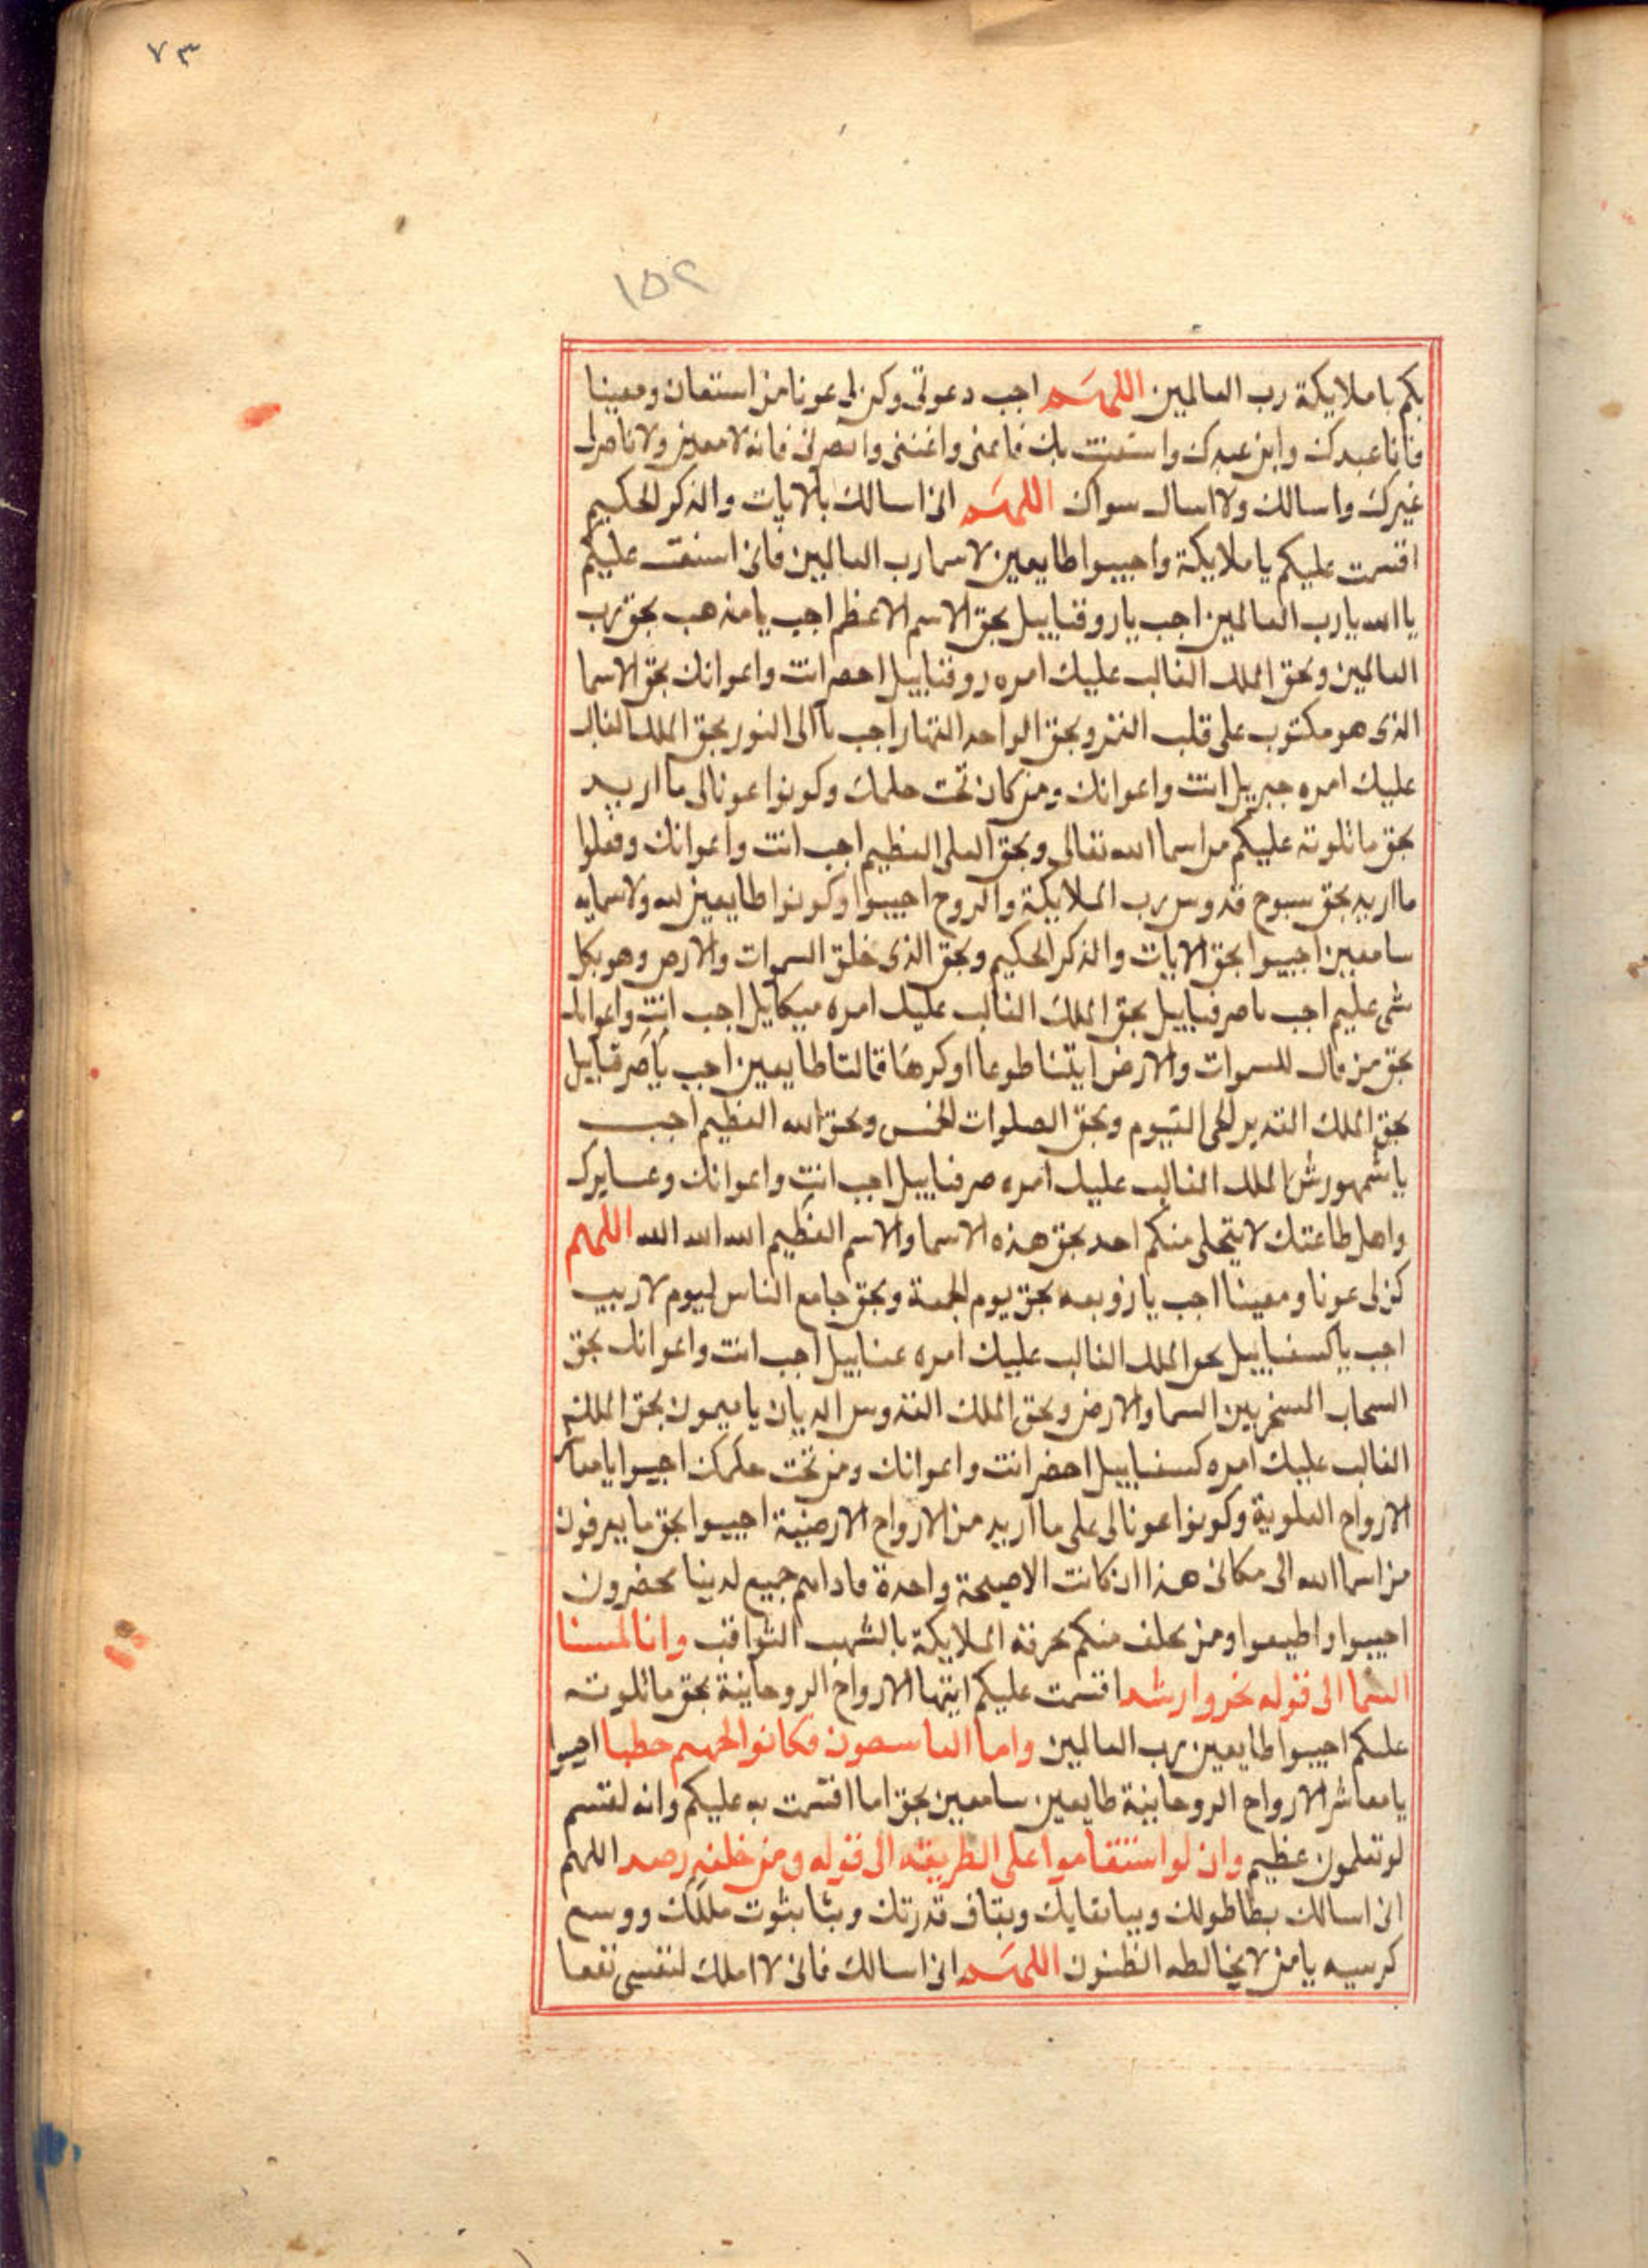 ٧٣
١٥٢
بكم يا ملايكة رب العالمين اللهم اجب دعوتي وكن لي عونا من استعان ومعينا
فانا عبدك وابن عبدك واستعنت بك فاعني واغثني وانصرني فانه لا معين ولا ناصر لي
غيرك واسالك ولا اسال سواك اللهم اني اسالك بالايات والذكر الحكيم
اقسمت عليكم يا ملايكة واجيبوا طايعين لاسما رب العالمين فاني استعنت عليكم
يا الله يا رب العالمين اجب يا روقياييل بحق الاسم الاعظم اجب يا مذهب بحق رب
العالمين وبحق الملك الغالب عليك امره روقياييل احضر انت واعوانك بحق الاسما
الذي هو مكتوب على قلب القمر وبحق الواحد القهار اجب يا ابي النور بحق الملك الغالب
عليك امره جبريل انت واعوانك ومن كان تحت حكمك وكونوا عونا لي ما اريد
بحق ما تلوته عليكم من اسما الله تعالى وبحق العلي العظيم اجب انت واعوانك وفعلوا
ما اريد بحق سبوح قدوس رب الملايكة والروح اجيبوا وكونوا طايعين لله ولاسمايه
سامعين اجيبوا بحق الايات والذكر الحكيم وبحق الذي خلق السموات والارض وهو بكل
شي عليم اجب يا صرفياييل بحق الملك الغالب عليك امره ميكاييل اجب انت واعوانك
بحق من قال للسموات والارض ايتنا طوعا او كرها قالتا طايعين اجب يا صرفياييل
بحق الملك القدير الحي القيوم وبحق الصلوات الخمس وبحق الله العظيم اجب
يا شمهورش الملك الغالب عليك امره صرفياييل اجب انت واعوانك وعسايرك
واهل طاعتك لا يتخلى منكم احد بحق هذه الاسما والاسم العظيم الله الله الله اللهم
كن لي عونا ومعينا اجب يا زوبعه بحق يوم الجمعة وبحق جامع الناس ليوم لا ريب
اجب يا كسفياييل بحق الملك الغالب عليك امره عنياييل اجب انت واعوانك بحق
السحاب المسخر بين السما والارض وبحق الملك القدوس الديان يا ميمون بحق الملك
الغالب عليك امره كسفياييل احضر انت واعوانك ومن تحت حكمك اجيبوا يا معاشر
الارواح العلوية وكونوا عونا لي على ما اريد من الارواح الارضية اجيبوا بحق ما يعرفون
من اسما الله الى مكاني هذا ان كانت الا صيحة واحدة فاذا هم جميع لدينا محضرون
اجيبوا واطيعوا ومن يخلف منكم تحرقه الملايكة بالشهب الثواقب وانا لمسنا
السما الى قوله تحروا رشدا اقسمت عليكم ايتها الارواح الروحانية بحق ما تلوته
عليكم اجيبوا طايعين رب العالمين واما القاسطون فكانوا لجهنم حطبا اجيبوا
يا معاشر الارواح الروحانية طايعين سامعين بحق اما اقسمت به عليكم وانه لقسم
لو تعلمون عظيم وان لو استقاموا على الطريقه الى قوله ومن خلفه رصدا اللهم
اني اسالك بطا طولك وبيا بقايك وبقاف قدرتك وبثا بثوت ملكك ووسع
كرسيه يا من لا يخالطه الظنون اللهم اني اسالك فاني لا املك لنفسي نفعا